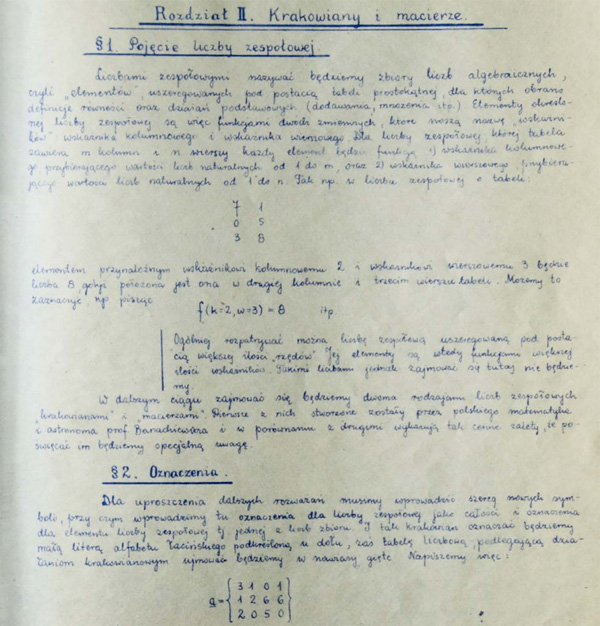 Rozdział II. Krakowiany i macierze.
§1. Pojęcie liczby zespołowej.
Liczbami zespołowymi nazywać będziemy zbiory liczb algebraicznych,
czyli „elementów”, uszeregowanych pod postacią tabeli prostokątnej, dla których obrano
definicje równości oraz działań podstawowych (dodawania, mnożenia itp.) Elementy określo-
nej liczby zespołowej są więc funkcjami dwóch zmiennych, które noszą nazwę „wskaźni-
ków” wskaźnika kolumnowego i wskaźnika wierszowego. Dla liczby zespołowej, której tabela
zawiera m kolumn i n wierszy każdy element będzie funkcją 1) wskaźnika kolumnowe-
go przybierającego wartości liczb naturalnych od 1 do m, oraz 2) wskaźnika wierszowego, przybiera-
jącego wartości liczb naturalnych od 1 do n. Tak np. w liczbie zespołowej o tabeli:
7 1
0 5
3 8
elementem przynależnym wskaźnikowi kolumnowemu 2 i wskaźnikowi wierszowemu 3 będzie
liczba 8, gdyż położona jest ona w drugiej kolumnie i trzecim wierszu tabeli. Możemy to
zaznaczyć np. pisząc
f(k=2, w=3) = 8 itp.
Ogólniej rozpatrywać można liczbę zespołową uszeregowaną pod posta-
cią większej ilości „rzędów”. Jej elementy są wtedy funkcjami większej
ilości wskaźników. Takimi liczbami jednak zajmować się tutaj nie będzie-
my.
W dalszym ciągu zajmować się będziemy dwoma rodzajami liczb zespołowych
„krakowianami” i „macierzami”. Pierwsze z nich stworzone zostały przez polskiego matematyka
i astronoma prof. Banachiewicza i w porównaniu z drugimi wykazują tak cenne zalety, że po-
święcać im będziemy specjalną uwagę.
§2. Oznaczenia.
Dla uproszczenia dalszych rozważań musimy wprowadzić szereg nowych sym-
boli, przy czym wprowadzimy tu oznaczenia dla liczby zespołowej jako całości i oznaczenia
dla elementu liczby zespołowej tj. jednej z liczb zbioru. I tak krakowian oznaczać będziemy
małą literą alfabetu łacińskiego podkreśloną u dołu, zaś tabelę liczbową, podlegającą dzia-
łaniom krakowianowym ujmować będziemy w nawiasy gięte. Napiszemy więc:
a = { 3 1 0 1 }
{ 1 2 6 6 }
{ 2 0 5 0 }